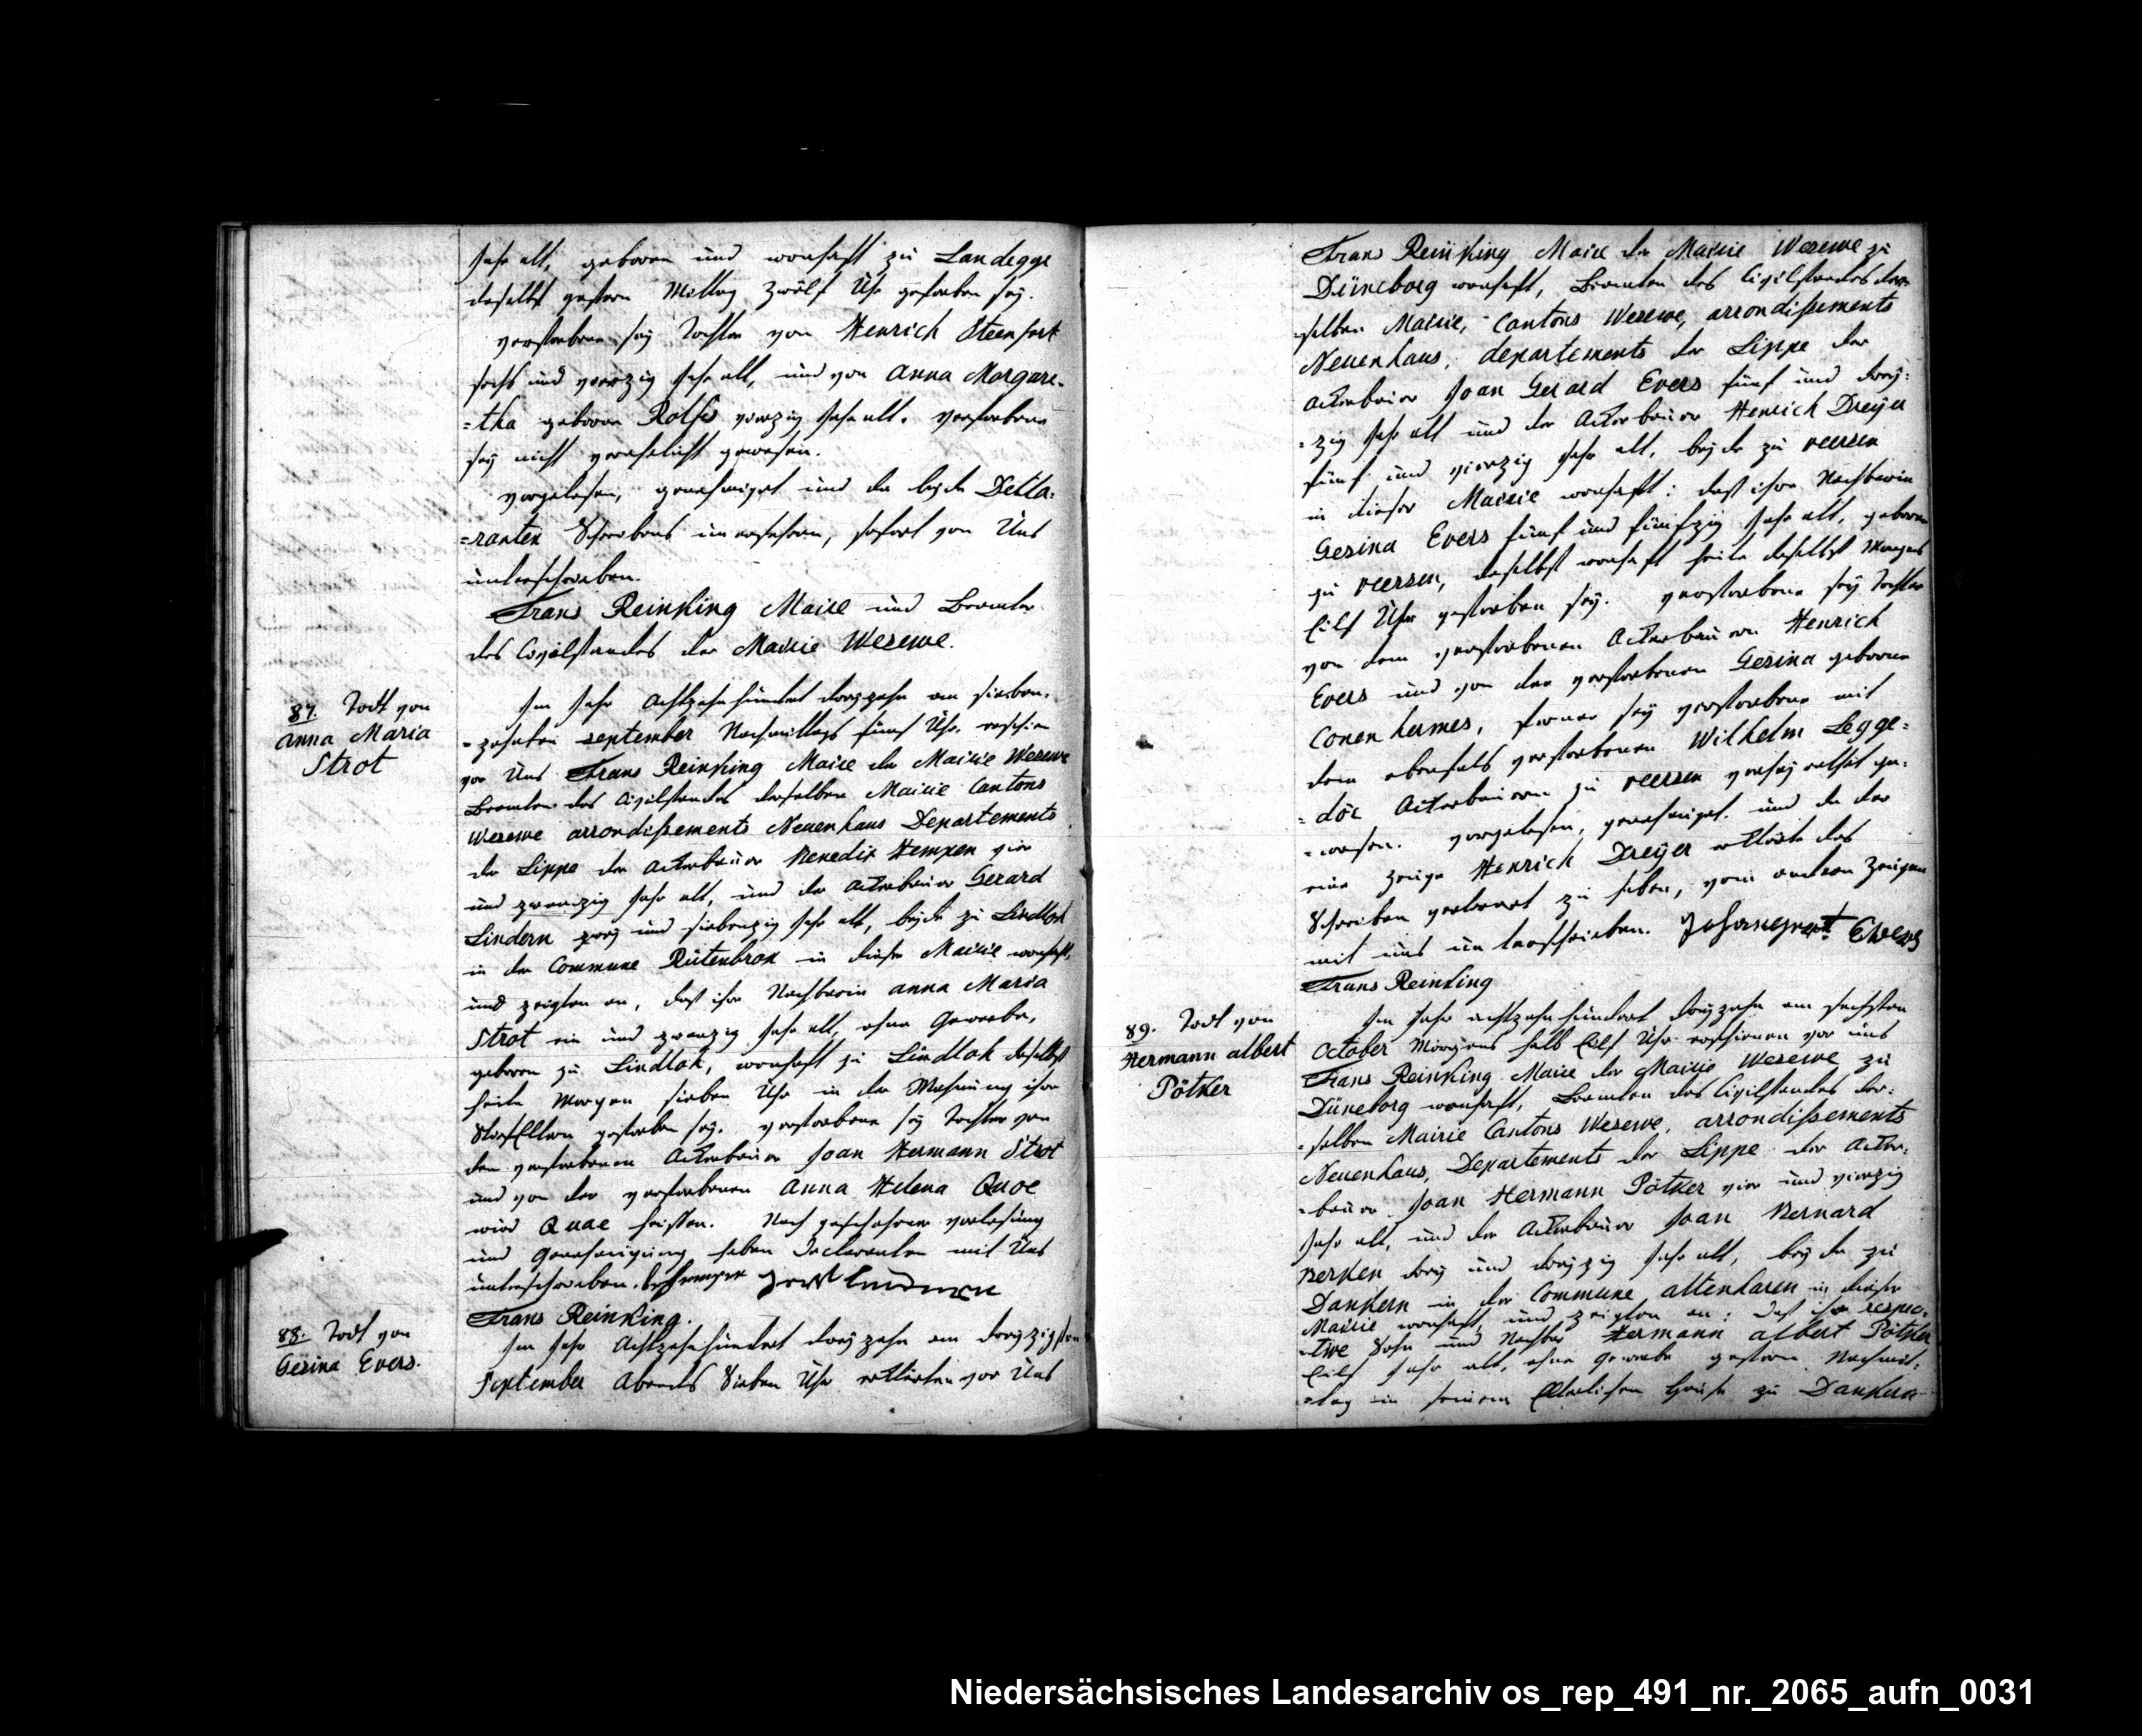 Jahr alt, geboren und wonhaft zu Landegge
daselbst gestern Mittag zwölf Uhr gestorben sey.
verstorbene sey Tochter von Henrich Steenfort
sechs und vierzig Jahr alt, und von Anna Margare-
=tha geboren Rolfs vierzig Jahr alt. verstorbene
sey nicht verehelicht gewesen.
vorgelesen, genehmiget und da beyde Decla-
=ranten Schreibens unerfahren, sofort von Uns
unterschrieben.
Frans Reinking Maire und Beamter
des Civilstandes der Mairie Wesewe.
87. Todt von
Anna Maria
Strot
Im Jahr Achtzehnhundert dreyzehn am sieben-
=zehnten september Nachmittags fünf Uhr, erschien
vor Uns Frans Reinking Maire der Mairie Wesewe
Beamten des Civilstandes derselben Mairie Cantons
Wesewe arrondissements Neuenhaus Departements
der Lippe der Ackerbauer Benedix Hempen vier
und zwanzig Jahr alt, und der Ackerbauer Gerard
Lindern zwey und siebenzig Jahr alt, beyde zu Lindloh
in der Commune Rütenbrok in dieser Mairie wonhaft,
und zeigten an, daß ihre Nachbarin anna Maria
Strot ein und zwanzig Jahr alt, ohne Gewerbe,
geboren zu Lindloh, wonhaft zu Lindloh daselbst
heute Morgen sieben Uhr in der Wohnung ihrer
Stiefeltern gestorben sey. verstorbene sey Tochter von
den verstorbenen Ackerbauer Joan Hermann Strot
und von der verstorbenen Anna Helena Quoe
wird Quae heissen. Nach geschehener vorlesung
und Genehmigung haben Declaranten mit Uns
unterschrieben.
Frans Reinking.
88. Todt von
Gesina Evers.
Im Jahr Achtzehnhundert dreyzehn am dreyzigsten
September Abends Sieben Uhr erklärten vor Uns
Frans Reinking Maire der Mairie Wesewe zu
Düneborg wonhaft, Beamten des Civilstandes der-
=selben Mairie, Cantons Wesewe, arrondissements
Neuenhaus, departements der Lippe der
Ackerbauer Joan Gerard Evers fünf und drey-
=zig Jahr alt und der Ackerbauer Henrich Dreyer
fünf und vierzig Jahr alt, beyde zu veersen
in dieser Mairie wonhaft: daß ihre Nachbarin
Gesina Evers fünf und fünfzig Jahr alt, geboren
zu veersen, daselbst wonhaft heute daselbst Morgens
Eilf Uhr gestorben sey. verstorbene sey Tochter
von dem verstorbenen Ackerbauern Henrich
Evers und von der verstorbenen Gesina geborne
Conen hermes, ferner sey verstorbene mit
dem ebenfals verstorbenen Wilhelm Legge-
=döc Ackerbauern zu veersen verheyrathet ge-
=wesen. vorgelesen, genehmiget und da der
eine Zeuge Henrich Dreyer erklärte das
Schreiben verlernet zu haben, vom andern Zeugen
mit uns unterschrieben. Johan gerrtt Evers
Frans Reinking
89. Todt von
Hermann albert
Pötker
Im Jahr achtzehnhundert dreyzehn am sechsten
October Morgens halb Eilf Uhr erschienen vor uns
Frans Reinking Maire der Mairie Wesewe zu
Düneborg wonhaft, Beamten des Civilstandes der-
=selben Mairie Cantons Wesewe, arrondissements
Neuenhaus, Departements der Lippe der Acker-
=bauer Joan Hermann Pötker vier und vierzig
Jahr alt, und der Ackerbauer Joan Bernard
Berken drey und dreyzig Jahr alt, beyde zu
Dankern in der Commune altenharen in dieser
Mairie wonhaft, und zeigten an: daß ihr respec-
=tive Sohn und Nachbar Hermann albert Pötker
Eilf Jahr alt, ohne Gewerbe gestern Nachmit-
=tag in seinem Elterlichen Hause zu Dankern
Niedersächsisches Landesarchiv os_rep_491_nr._2065_aufn_0031